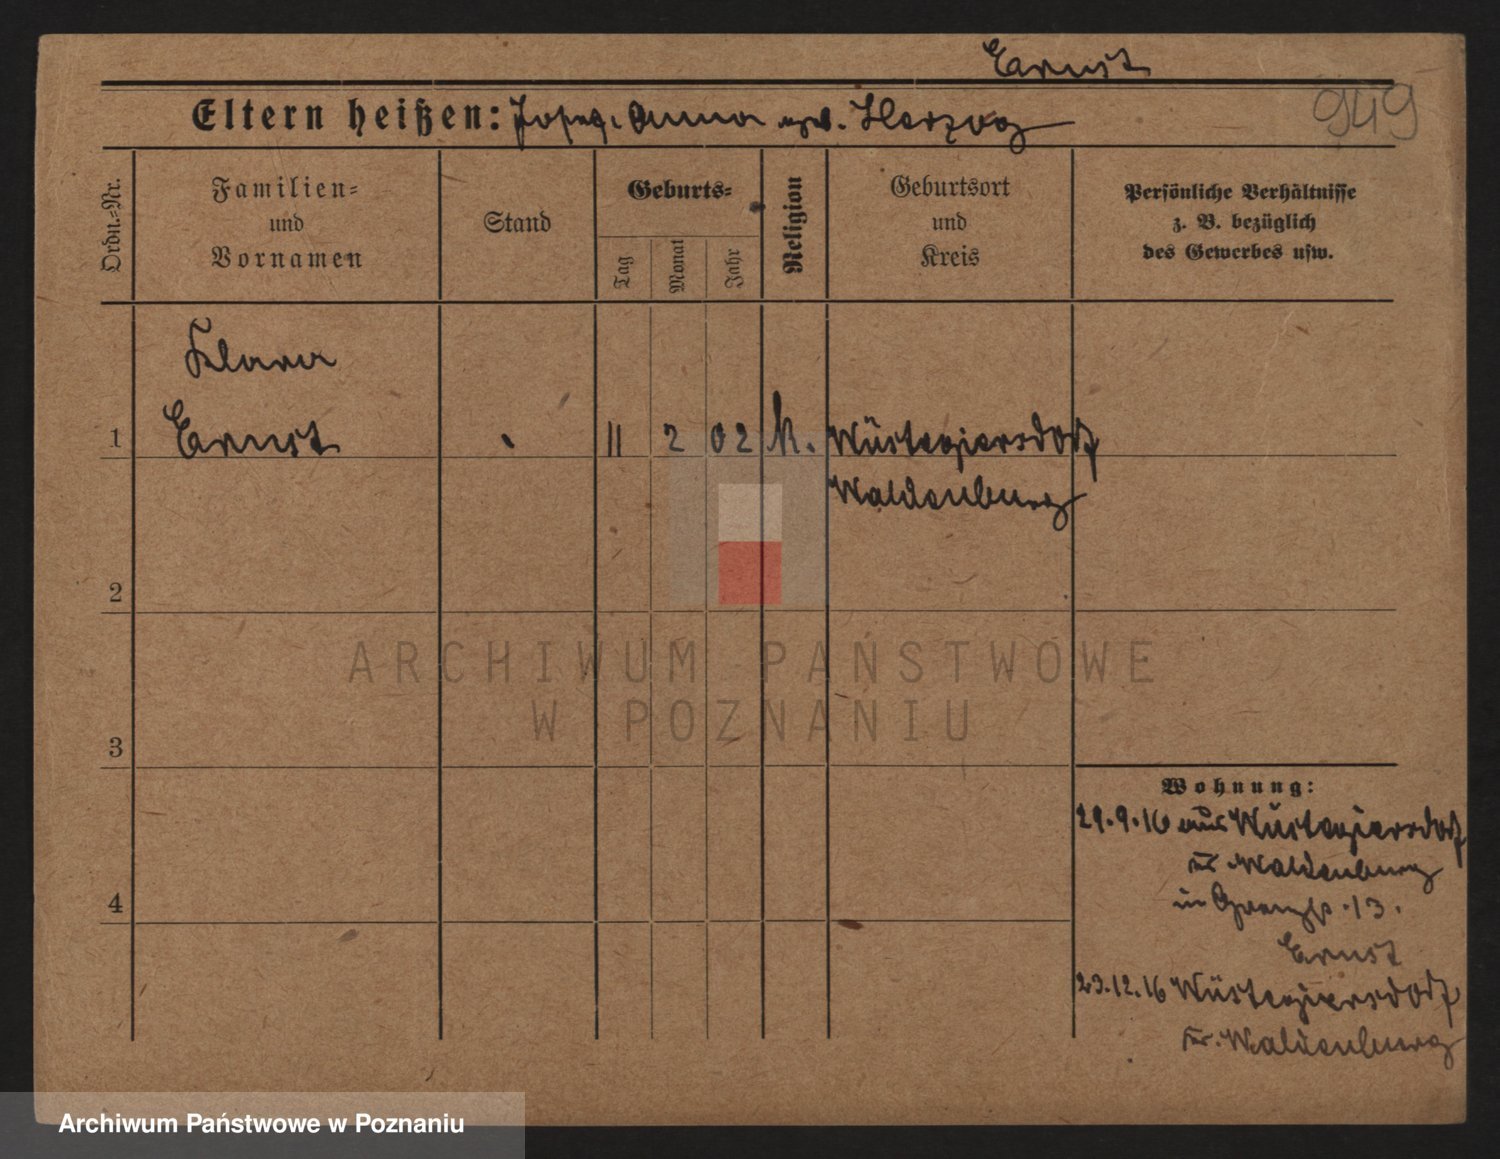 Ernst
Eltern heißen: Josef, Anna geb. Herzog
949
Ordn.-Nr.
Familien-
und
Vornamen
Stand
Geburts-
Tag
Monat
Jahr
Religion
Geburtsort
und
Kreis
Persönliche Verhältnisse
z. B. bezüglich
des Gewerbes usw.
Klara
1 Ernst 11 2 02 k. Wüstegiersdorf
Waldenburg
2
ARCHIWUM PAŃSTWOWE
W POZNANIU
3
Wohnung:
29.9.16 aus Wüstegiersdorf
Kr. Waldenburg
in 13.
4
Ernst
23.12.16 Wüstegiersdorf
Kr. Waldenburg
Archiwum Państwowe w Poznaniu